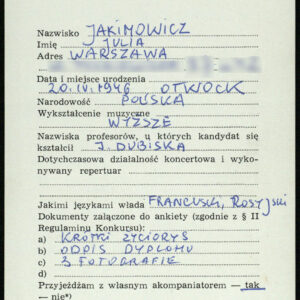 Nazwisko JAKIMOWICZ
Imię JULIA
Adres WARSZAWA
Data i miejsce urodzenia
20.IV.1946 OTWOCK
Narodowość POLSKA
Wykształcenie muzyczne
WYŻSZE
Nazwiska profesorów, u których kandydat się
kształcił I. DUBISKA
Dotychczasowa działalność koncertowa i wyko-
nywany repertuar
Jakimi językami włada FRANCUSKI, ROSYJSKI
Dokumenty załączone do ankiety (zgodnie z § II
Regulaminu Konkursu):
a) KRÓTKI ŻYCIORYS
b) ODPIS DYPLOMU
c) 3 FOTOGRAFIE
d)
Przyjeżdżam z własnym akompaniatorem — tak
— nie*)